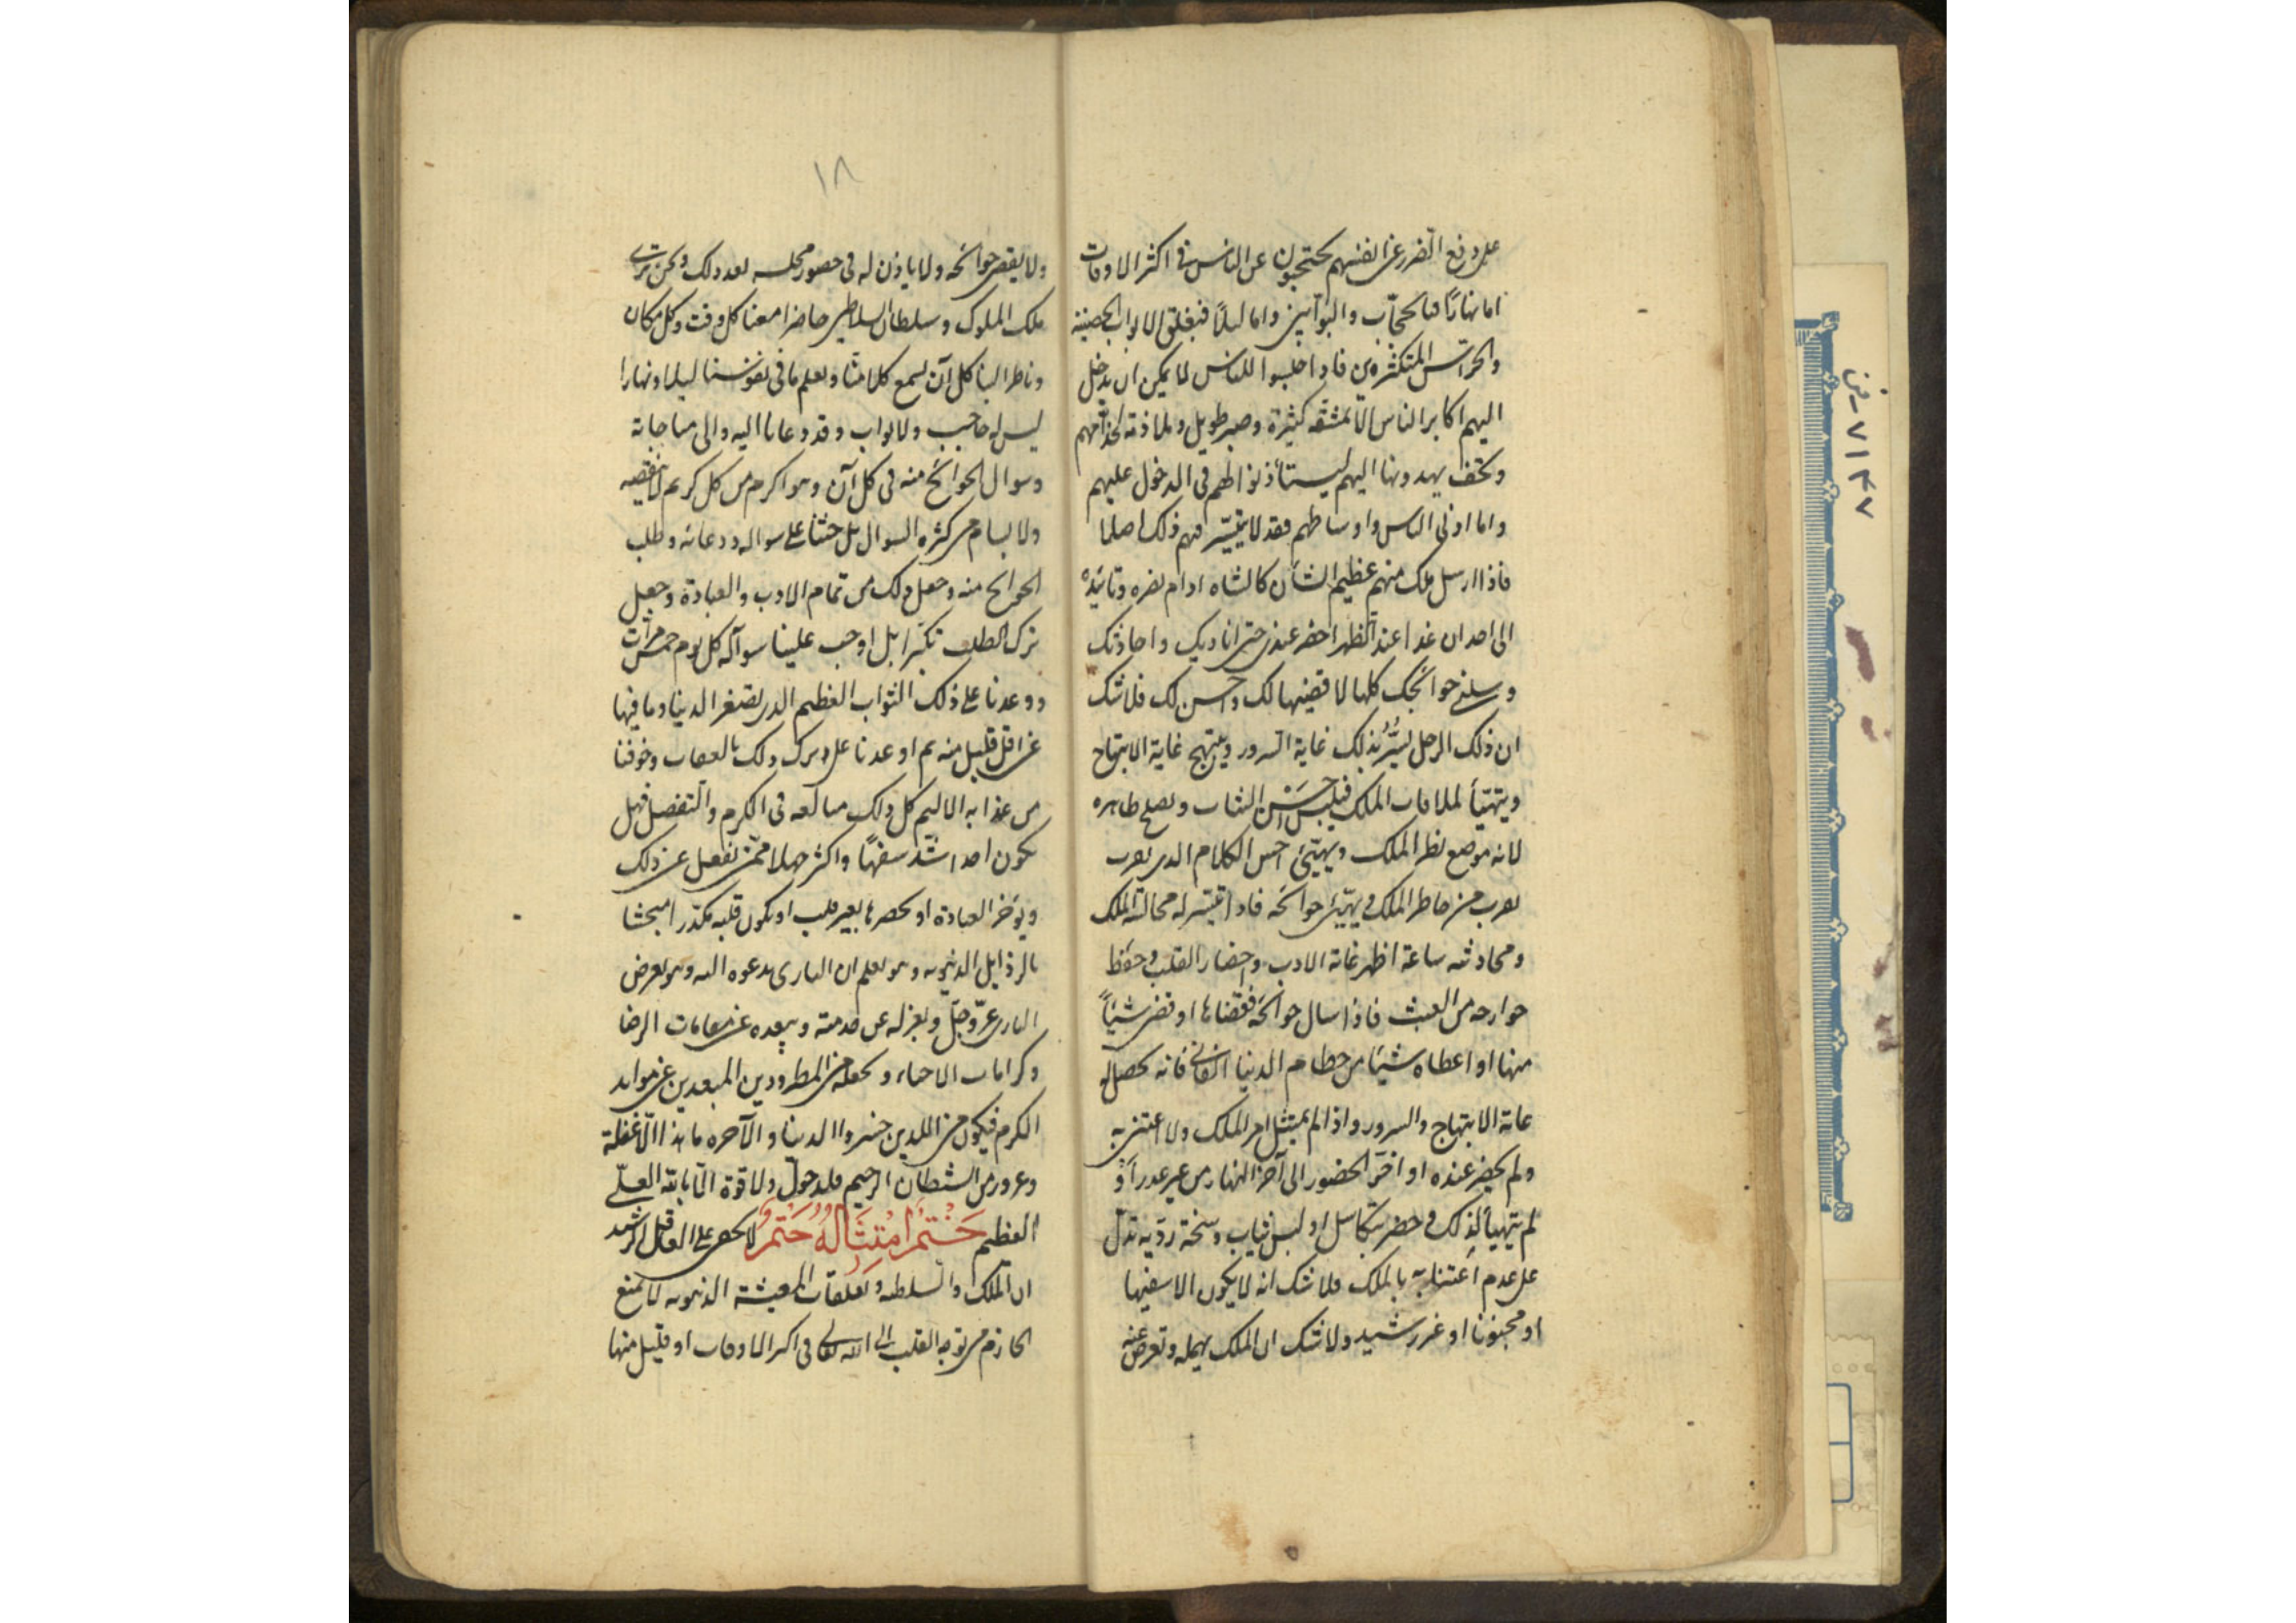 على دفع الضرر عن انفسهم يحتجبون عن الناس في اكثر الاوقات
اما نهارًا فبالحجّاب والبوّابين واما ليلًا فبغلق الابواب الحصينة
والحرّاس المتكثره فاذا جلسوا للناس لا يمكن ان يدخل
اليهم اكابر الناس الا بمشقة كثيرة وصبر طويل وملاذة لخدّامهم
وتحف يهدونها اليهم ليستأذنوا لهم في الدخول عليهم
واما ادنى الناس واوساطهم فقد لا يتيسّر لهم ذلك اصلا
فاذا ارسل ملك منهم عظيم الشأن كالشاه ادام نصره وتائيده
الى احد ان غدا عند الظهر احضر عندي حتى اناديك واحاذثك
وسلني حوائجك كلها لاقضيها لك واحسن لك فلا شك
ان ذلك الرجل يسّر بذلك غاية السرور ويبتهج غاية الابتهاج
ويتهيّأ لملاقات الملك فيلبس احسن الثياب ويصلح ظاهره
لانه موضع نظر الملك ويهيّئ احسن الكلام الذى يقرب
يقرب من خاطر الملك ويهيّئ حوائجه فاذا تيسّر له مجالسة الملك
ومحادثته ساعة اظهر غاية الادب واحضار القلب وحفظ
جوارحه من العبث فاذا سال حوائجه فقضاها او قضى شيئاً
منها او اعطاه شيئا من حطام الدنيا الفانى فانه يحصل له
غاية الابتهاج والسرور واذا لم يمتثل امر الملك ولا اعتنى به
ولم يحضر عنده او اخّر الحضور الى آخر النهار من غير عذر أو
لم يتهيأ لذلك وحضر بتكاسل او لبس ثياب وسخة رديه تدلّ
على عدم اعتنائه بالملك فلا شك انه لا يكون الا سفيها
او مجنونا او غير رشيد ولا شك ان الملك يهمله وتعرض عنه
١٨
ولا يقضى حوائجه ولا ياذن له في حضور مجلسه بعد ذلك ونحن نرى
ملك الملوك وسلطان السلاطين حاضرا معنا كل وقت وكل مكان
وناظر الينا كل آن يسمع كلامنا ويعلم ما فى نفوسنا ليلا ونهارا
ليس له حاجب ولا بواب وقد دعانا اليه والى مناجاته
وسوال الحوائج منه فى كل آن وهو اكرم من كل كريم لا
ولا يسام من كثرة السوال بل حثنا على سواله ودعائه وطلب
الحوائج منه وجعل ذلك من تمام الادب والعبادة وجعل
ترك الطلب تكبّرا بل اوجب علينا سواله كل يوم خمس مرات
ووعدنا على ذلك الثواب العظيم الذى يصغر الدنيا وما فيها
عن اقل قليل منه ثم اوعدنا على ترك ذلك بالعقاب وخوفنا
من عذابه الاليم كل ذلك مبالغة فى الكرم والتفضل فهل
يكون احد اشدّ سفهًا واكثر جهلا ممّن يغفل عن ذلك
ويؤخر العبادة او يحضرها بغير قلب او يكون قلبه مكدرا
بالرذايل الدنيويه وهو يعلم ان البارى يدعوه اليه وهو يعرض
البارى عزّ وجلّ ويعزله عن خدمته ويبعده عن مقامات الرضا
وكرامات الاحباء ويجعله من المطرودين المبعدين عن موايد
الكرم فيكون من الذين خسروا الدنيا والآخره ما هذا الّا غفلة
وغرور من الشيطان الرجيم فلا حول ولا قوة الّا بالله العلىّ
العظيم خَتْمٌ امْتِثَالُهُ حَتْمٌ لا يخفى على العاقل الرشيد
ان الملك والسلطه وتعلقات المعيشة الدنيويه لا تمنع
الحازم من توجه القلب الى الله تعالى فى اكثر الاوقات او قليل منها
٧١٤٧